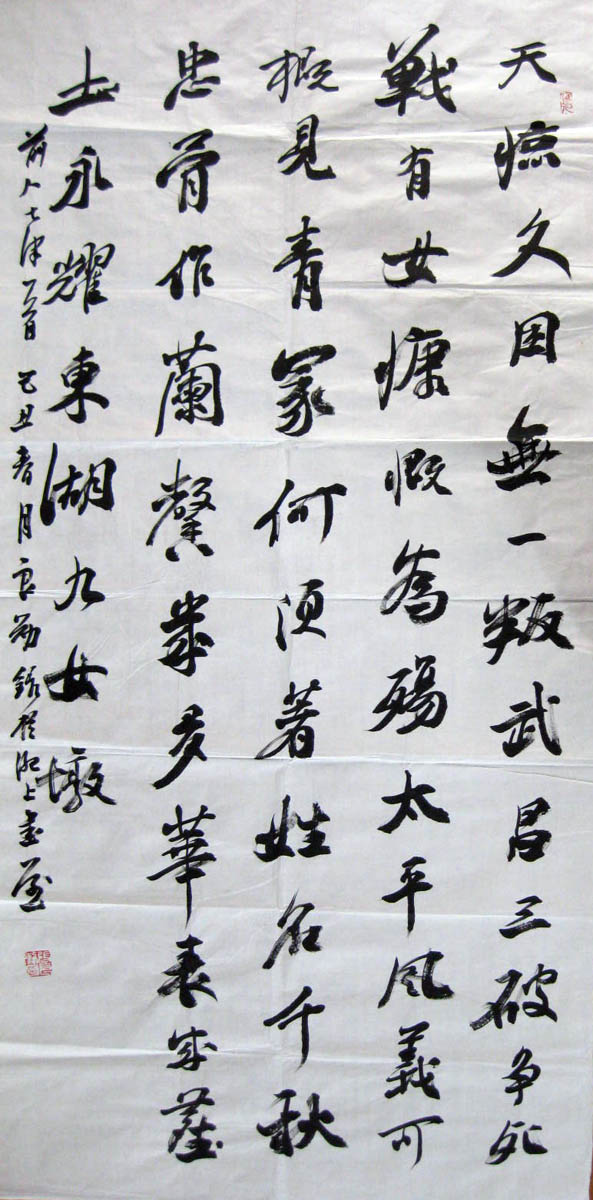 天惊久困無一叛武昌三破争死
戰有女慷慨為殤太平風義可
概見青冢何須著姓名千秋
忠骨作蘭馨幾多華表成塵
土永耀東湖九女墩
前人七律一首 己丑春月良勤錄於淝上書屋